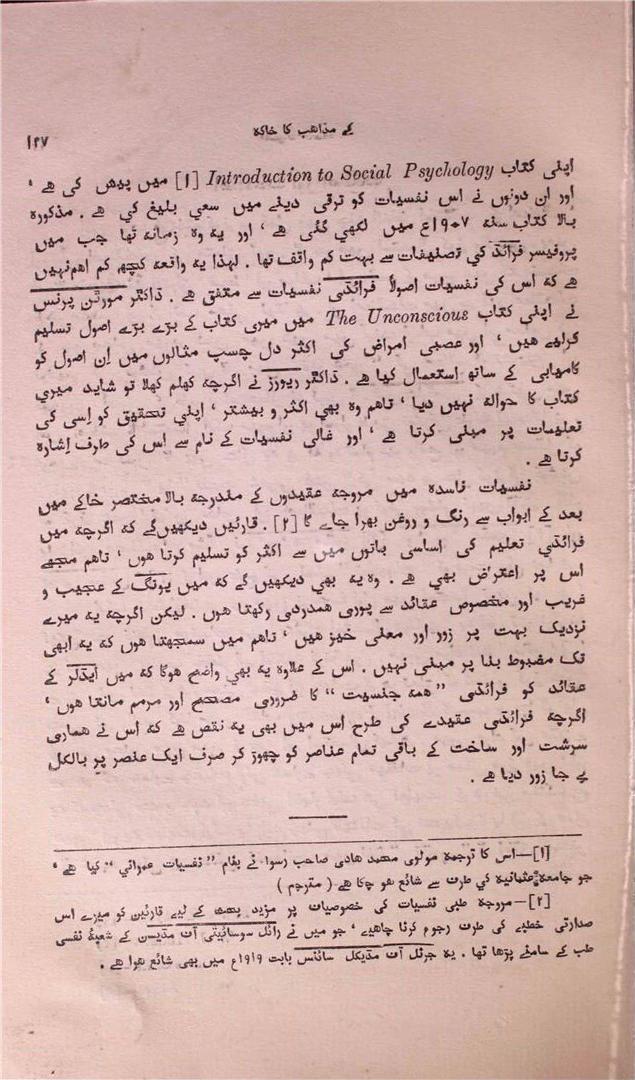 کے مذاہب کا خاکہ
۱۲۷
اپنی کتاب Introduction to Social Psychology [۱] میں پیش کی ہے ،
اور ان دونوں نے اس نفسیات کو ترقی دینے میں سعی بلیغ کی ہے . مذکورہ
بالا کتاب سنہ ۱۹۰۷ع میں لکھی گئی ہے ، اور یہ وہ زمانہ تھا جب میں
پروفیسر فرائڈ کی تصنیفات سے بہت کم واقف تھا . لہذا یہ واقعہ کچھ کم اہم نہیں
ہے کہ اس کی نفسیات اصولاً فرائڈی نفسیات سے متفق ہے . ڈاکٹر مورٹن پرنس
نے اپنی کتاب The Unconscious میں میری کتاب کے بڑے بڑے اصول تسلیم
کرلیے ہیں ، اور عصبی امراض کی اکثر دل چسپ مثالوں میں اِن اصول کو
کامیابی کے ساتھ استعمال کیا ہے . ڈاکٹر ریورز نے اگرچہ کھلم کھلا تو شاید میری
کتاب کا حوالہ نہیں دیا ، تاہم وہ بھی اکثر و بیشتر ، اپنی تحقیق کو اِسی کی
تعلیمات پر مبنی کرتا ہے ، اور غالی نفسیات کے نام سے اس کی طرف اِشارہ
کرتا ہے .
نفسیات فاسدہ میں مروجہ عقیدوں کے مندرجہ بالا مختصر خاکے میں
بعد کے ابواب سے رنگ و روغن بھرا جاے گا [۲] . قارئیں دیکھیں گے کہ اگرچہ میں
فرائڈی تعلیم کی اساسی باتوں میں سے اکثر کو تسلیم کرتا ہوں ، تاہم مجھے
اس پر اعتراض بھی ہے . وہ یہ بھی دیکھیں گے کہ میں یونگ کے عجیب و
غریب اور مخصوص عقائد سے پوری ہمدردی رکھتا ہوں . لیکن اگرچہ یہ میرے
نزدیک بہت پر زور اور معنی خیز ہیں ، تاہم میں سمجھتا ہوں کہ یہ ابھی
تک مضبوط بنا پر مبنی نہیں . اس کے علاوہ یہ بھی واضح ہوگا کہ میں ایڈلر کے
عقائد کو فرائڈی ” ہمہ جنسیت “ کا ضروری مصحح اور مرمم مانتا ہوں ،
اگرچہ فرائڈی عقیدے کی طرح اس میں بھی یہ نقص ہے کہ اس نے ہماری
سرشت اور ساخت کے باقی تمام عناصر کو چھوڑ کر صرف ایک عنصر پر بالکل
بے جا زور دیا ہے .
[۱]—اس کا ترجمہ مولوی محمد ہادی صاحب رسوا نے بنام ” نفسیات عمرانی “ کیا ہے ،
جو جامعہ عثمانیہ کی طرف سے شائع ہو چکا ہے ( مترجم )
[۲]—مروجہ طبی نفسیات کی خصوصیات پر مزید بحث کے لیے قارئین کو میرے اس
صدارتی خطبے کی طرف رجوع کرنا چاہیے ، جو میں نے رائل سوسائیٹی آف مڈیسن کے شعبۂ نفسی
طب کے سامنے پڑھا تھا . یہ جرنل آف مڈیکل سائنس بابت ۱۹۱۹ع میں بھی شائع ہوا ہے .